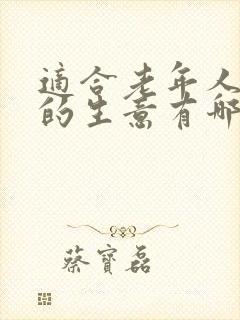 適合老年人
的生意有哪
蔡寶磊